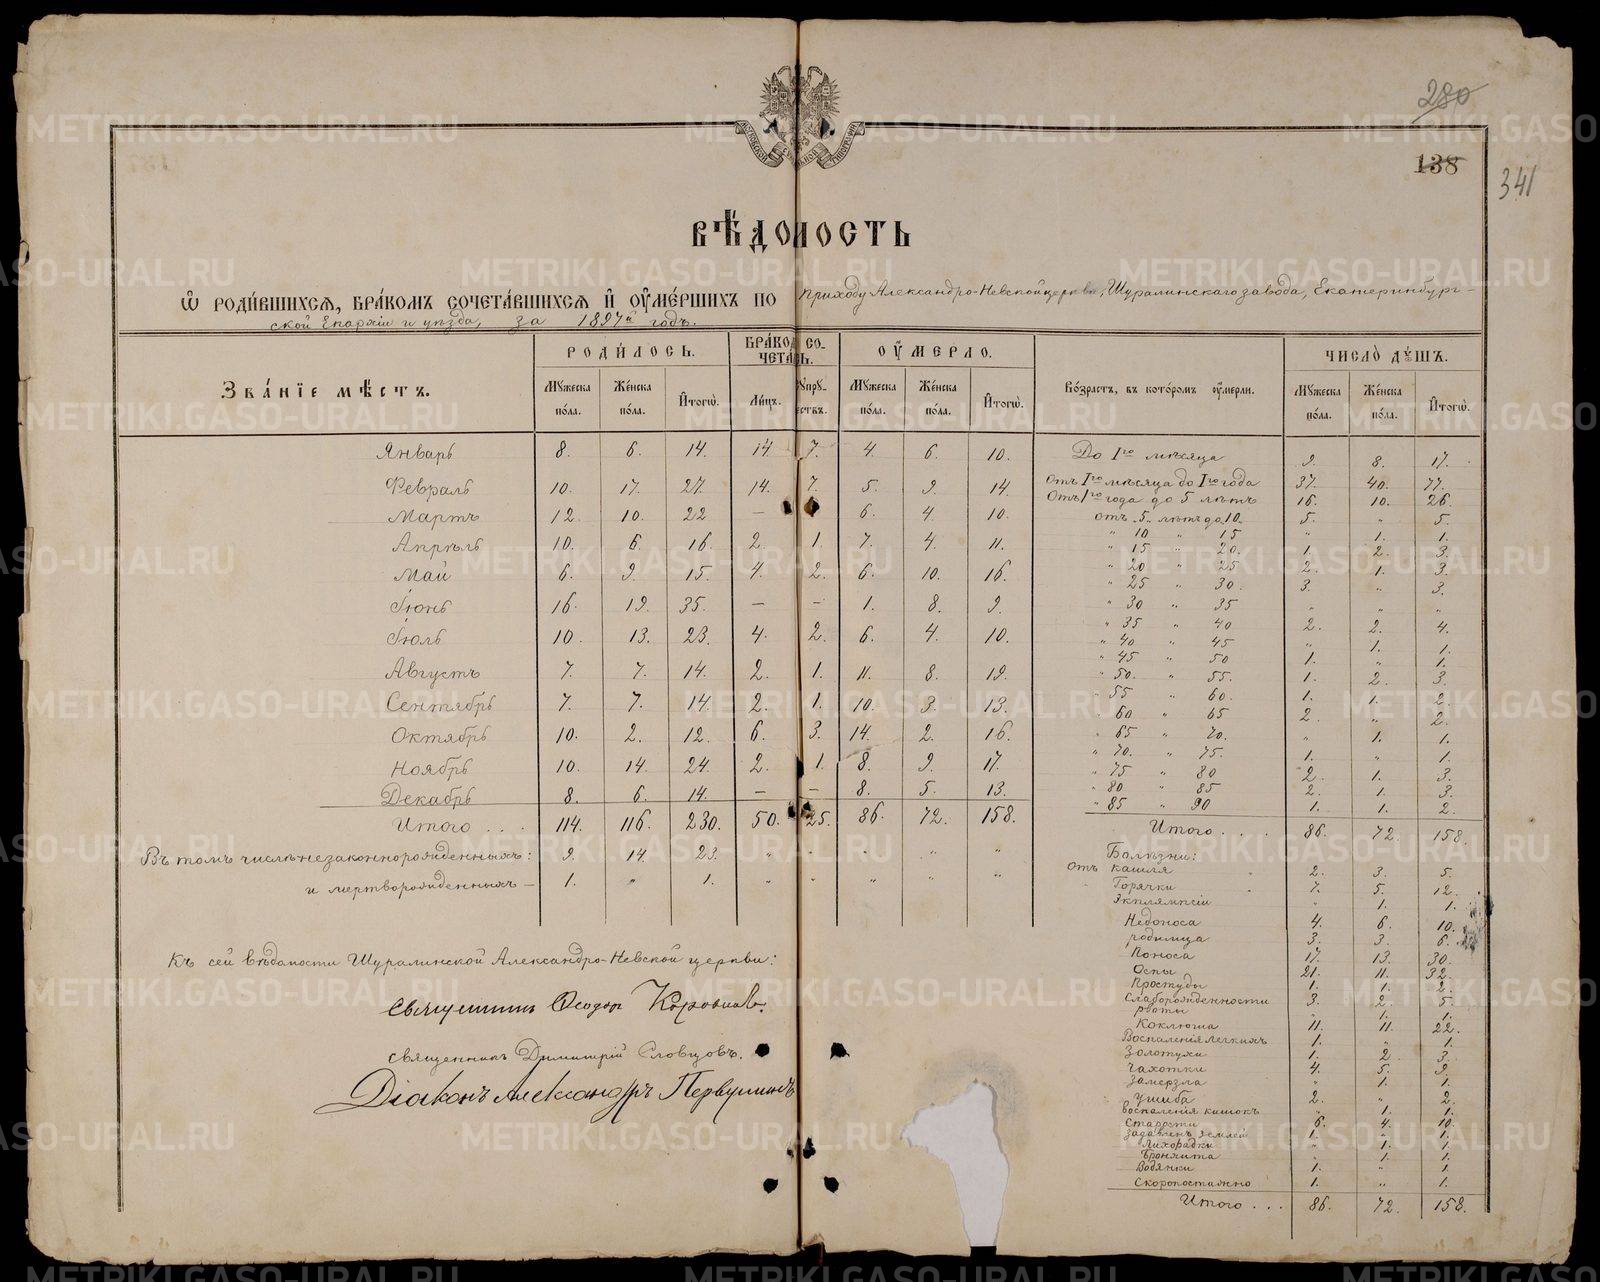 280
138
341
МОСКОВСКОЙ СѴНОДАЛЬНОЙ ТИПОГРАФІИ
ВѢДОМОСТЬ
Ѡ РОДИ́ВШИХСѦ, БРА́КОМЪ СОЧЕТА́ВШИХСѦ И҆ ОУ҆МЕ́РШИХЪ ПО приходу Александро-Невской церкви, Шуралинскаго завода, Екатеринбург-
ской Епархіи и уѣзда, за 1897й годъ.
ЗВА́НІЕ МѢСТЪ. РОДИ́ЛОСЬ. БРА́КОМ СОЧЕТА́СЬ. ОУ҆́МЕРЛО. Во́зрастъ, въ кото́ромъ оу҆мерли. ЧИСЛО̀ ДꙊШЪ.
Мꙋжеска по́ла. Же́нска по́ла. И҆того̀. Ли́цъ. Супру́жествъ. Мꙋжеска по́ла. Же́нска по́ла. И҆того̀. Мꙋжеска по́ла. Же́нска по́ла. И҆того̀.
Январь 8. 6. 14. 14. 7. 4. 6. 10.
Февраль 10. 17. 27. 14. 7. 5. 9. 14.
Мартъ 12. 10. 22 — 6. 4. 10.
Апрѣль 10. 6. 16. 2. 1. 7. 4. 11.
Май 6. 9. 15. 4. 2. 6. 10. 16.
Іюнь 16. 19. 35. — — 1. 8. 9.
Іюль 10. 13. 23. 4. 2. 6. 4. 10.
Августъ 7. 7. 14. 2. 1. 11. 8. 19.
Сентябрь 7. 7. 14. 2. 1. 10. 3. 13.
Октябрь 10. 2. 12. 6. 3. 14. 2. 16.
Ноябрь 10. 14. 24. 2. 1. 8. 9. 17.
Декабрь 8. 6. 14. — — 8. 5. 13.
Итого . . . 114. 116. 230. 50. 25. 86. 72. 158.
Въ томъ числѣ незаконнорожденныхъ: 9. 14. 23. " " " " "
и мертворожденныхъ — 1. " 1. " " " " "
Къ сей вѣдомости Шуралинской Александро-Невской церкви:
Священникъ Ѳеодоръ Коровинъ.
священникъ Димитрій Словцовъ.
Діаконъ Александръ Первушинъ
До 1го мѣсяца 9. 8. 17.
отъ 1го мѣсяца до 1го года 37. 40. 77.
Отъ 1го года до 5 лѣтъ 16. 10. 26.
отъ 5 лѣтъ до 10. 5. " 5.
" 10 " 15 " 1. 1.
" 15 " 20. 1. 2. 3.
" 20 " 25 2. 1. 3.
" 25 " 30. 3. " 3.
" 30 " 35 " " "
" 35 " 40 2. 2. 4.
" 40 " 45 " 1. 1.
" 45 " 50 1. " 1.
" 50. " 55. 1. 2. 3.
" 55 " 60. 1. 1. 2.
" 60 " 65 2. " 2.
" 65 " 70. " 1. 1.
" 70. " 75. 1. " 1.
" 75 " 80 2. 1. 3.
" 80 " 85 2. 1. 3.
" 85 " 90 1. 1. 2.
Итого . . . . 86. 72. 158.
Болѣзни:
отъ кашля 2. 3. 5.
Горячки 7. 5. 12.
Экплямпсіи " 1. 1.
Недоноса 4. 6. 10.
родимца 3. 3. 6.
Поноса 17. 13. 30.
Оспы 21. 11. 32.
Простуды 1. 1. 2.
Слаборожденности 3. 2. 5.
рвоты " 1. 1.
Коклюша 11. 11. 22.
Воспаленія легкихъ 1. " 1.
Золотухи 1. 2. 3.
Чахотки 4. 5. 9.
Замерзла " 1. 1.
Ушиба 2. " 2.
Воспаленія кишокъ " 1. 1.
Старости 6. 4. 10.
Задавленъ землей 1. " 1.
Лихорадки " 1. 1.
Бронхита " 1. 1.
Водянки 1. " 1.
Скоропостижно 1. " 1.
Итого . . . 86. 72. 158.
METRIKI.GASO-URAL.RU